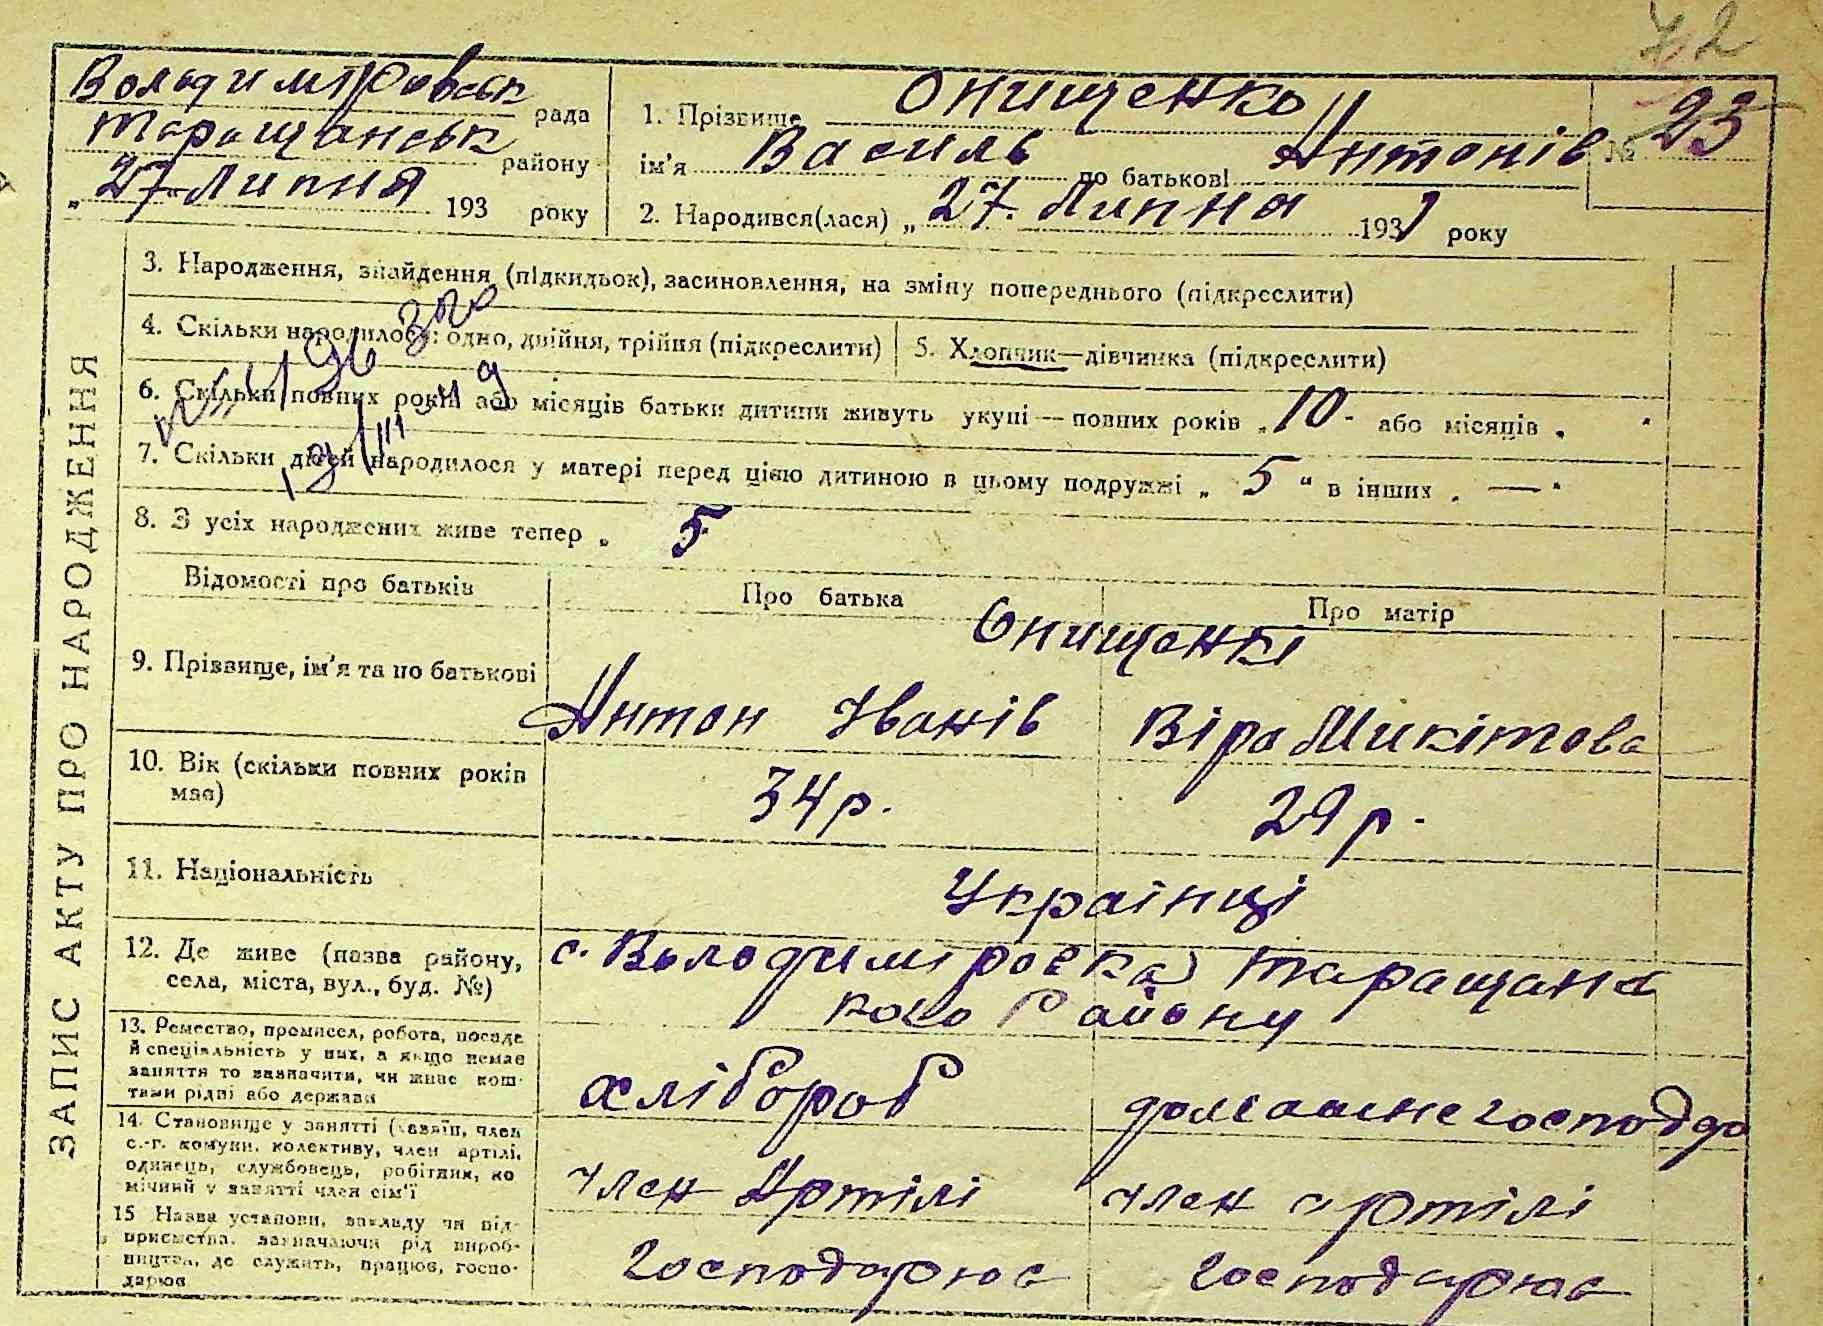 72
Володимировськ рада
Таращанськ району
„27 Липня 193 року
1. Прізвище Онищенко
ім'я Василь по батькові Антонів
№ 23
2. Народився(лася) „27. Липня 1931 року
ЗАПИС АКТУ ПРО НАРОДЖЕННЯ
3. Народження, знайдення (підкидьок), засиновлення, на зміну попереднього (підкреслити)
4. Скільки народилося: одно, двійня, трійня (підкреслити)
5. Хлопчик—дівчинка (підкреслити)
6. Скільки повних років або місяців батьки дитини живуть укупі — повних років „ 10 - або місяців „
7. Скільки дітей народилося у матері перед цією дитиною в цьому подружжі „ 5 “ в інших „ — “
8. З усіх народжених живе тепер „ 5
Відомості про батьків
Про батька
Про матір
9. Прізвище, ім'я та по батькові
Онищенкі
Антон Іванів
Віра Микітова
10. Вік (скільки повних років має)
34 р.
29 р.
11. Національність
Українці
12. Де живе (назва району,
села, міста, вул., буд. №)
с. Володимировка Таращанс
кого Району
13. Ремество, промисел, робота, посада
й спеціяльність у них, а якщо немає
заняття то зазначити, чи живе кош-
тами рідні або держави
хлібороб
14. Становище у занятті (хазяїн, член
с.-г. комуни, колективу, член артілі,
одинець, службовець, робітник, по
мічний у занятті член сім'ї
член Артілі
член артілі
15 Назва установи, закладу чи під-
приємства, зазначаючи рід вироб-
ництва, де служить, працює, госпо-
дарює
господарює
господарює